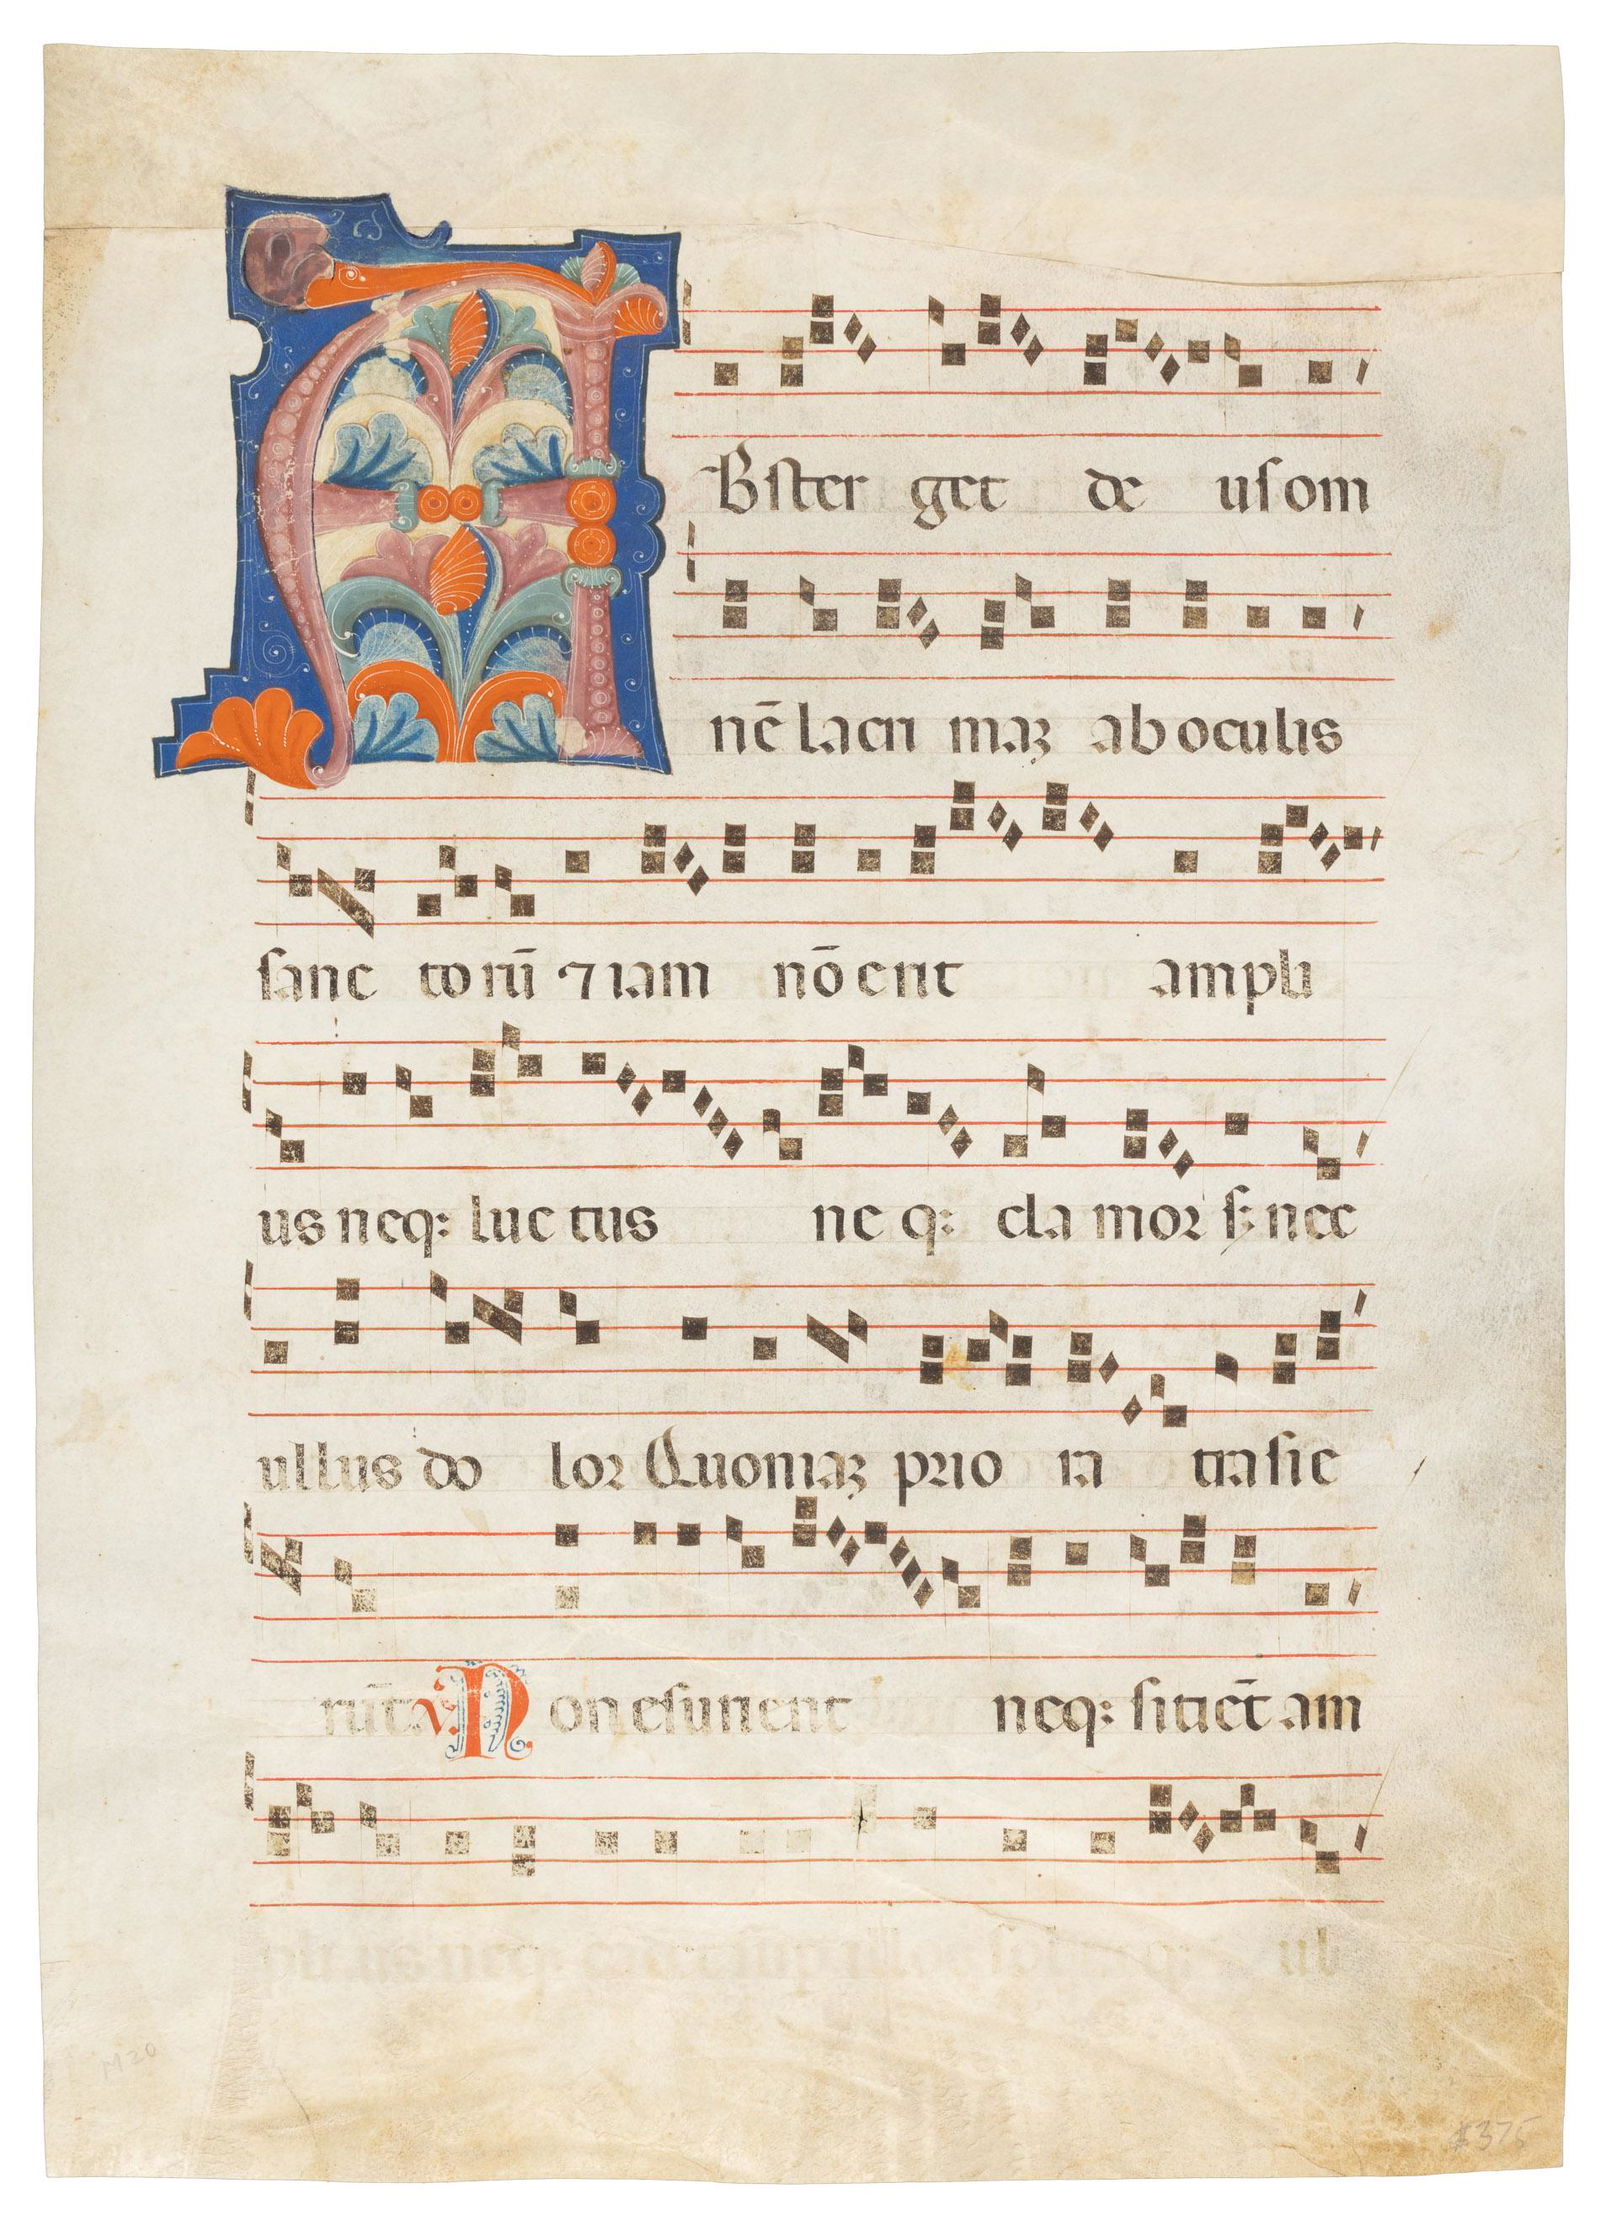 ABster get de us om
nē lacri maꝫ ab oculis
sanc to rū ⁊ iam nō erit ampli
us neq: luc tus ne q: cla mor sꝫ nec
ullus do lor Quoniaꝫ prio ra trāsie
rūt. V. Non esurient neq: sitiēt am
pli us neq: cadet sup illos sol ul
M20
$375